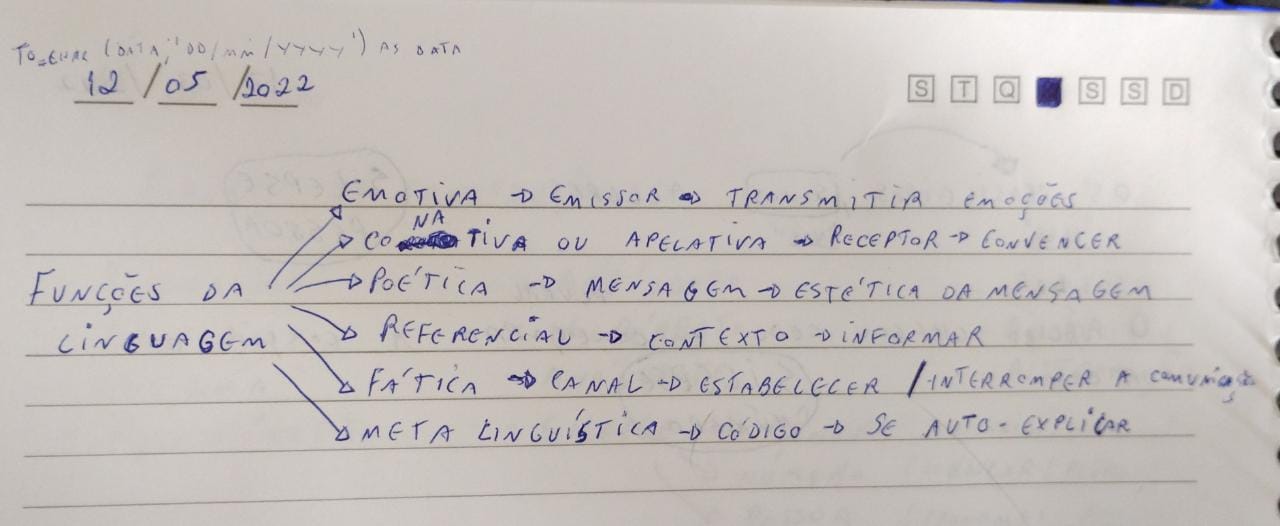 TO_CHAR (DATA, 'DD/MM/YYYY') AS DATA
12/05/2022
S T Q S S D
EMOTIVA → EMISSOR → TRANSMITIR EMOÇÕES
NA
CO TIVA OU APELATIVA → RECEPTOR → CONVENCER
FUNÇÕES DA
POÉTICA → MENSAGEM → ESTÉTICA DA MENSAGEM
LINGUAGEM
REFERENCIAL → CONTEXTO → INFORMAR
FÁTICA → CANAL → ESTABELECER / INTERROMPER A COMUNICAÇÃO
META LINGUÍSTICA → CÓDIGO → SE AUTO-EXPLICAR